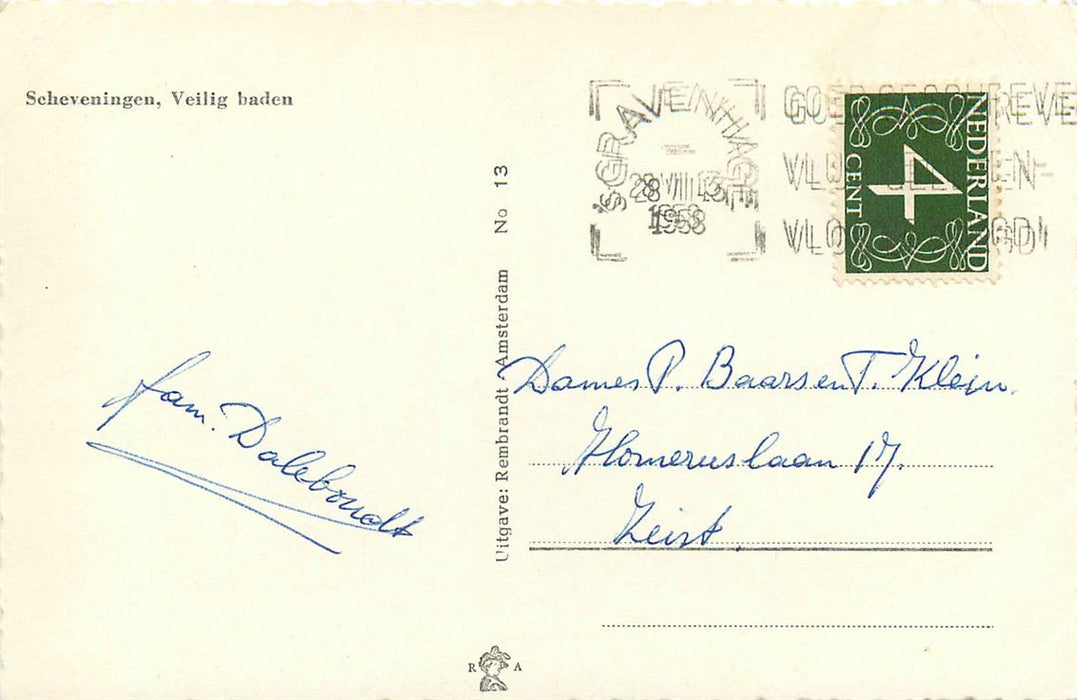 Scheveningen, Veilig baden
'sGRAVENHAGE
28 VIII 13
1958
GOED GESCHREVE
VLUG GELEZEN-
VLOT BEZORGD!
NEDERLAND
4
CENT
Uitgave: Rembrandt - Amsterdam No 13
fam. Daleboudt
Dames P. Baars en T. Klein.
Homeruslaan 17.
Zeist.
R A